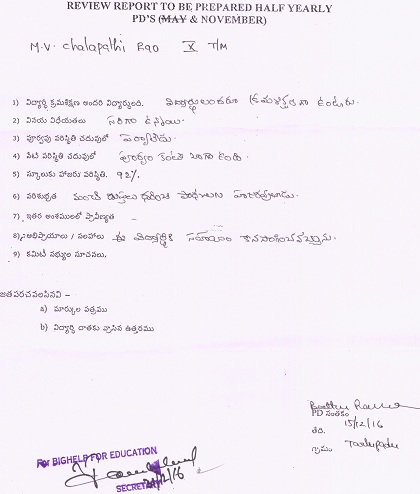 REVIEW REPORT TO BE PREPARED HALF YEARLY
PD'S (MAY & NOVEMBER)
M.V. Chalapathi Rao X T/M
1) విద్యార్థి క్రమశిక్షణ అందరి విద్యార్థులది. విద్యార్థులందరూ క్రమశిక్షణ గా ఉంటారు.
2) వినయ విధేయతలు సరిగా ఉన్నాయి.
3) పూర్వపు పరిస్థితి చదువులో పర్వాలేదు.
4) నేటి పరిస్థితి చదువులో పూర్వం కంటే బాగా ఉంది.
5) స్కూలుకు హాజరు పరిస్థితి. 92%.
6) పరిశుభ్రత మంచి దుస్తులు ధరించి పాఠశాలకు హాజరవుతాడు.
7) ఇతర అంశములలో ప్రావీణ్యత –
8) అభిప్రాయాలు / సలహాలు ఈ విద్యార్థికి సహాయం కొనసాగించవచ్చును.
9) కమిటీ సభ్యుల సూచనలు.
జతపరచవలసినవి –
a) మార్కుల పత్రము
b) విద్యార్థి దాతకు వ్రాసిన ఉత్తరము
PD సంతకం
తేది. 15/12/16
గ్రామం
For BIGHELP FOR EDUCATION
SECRETARY